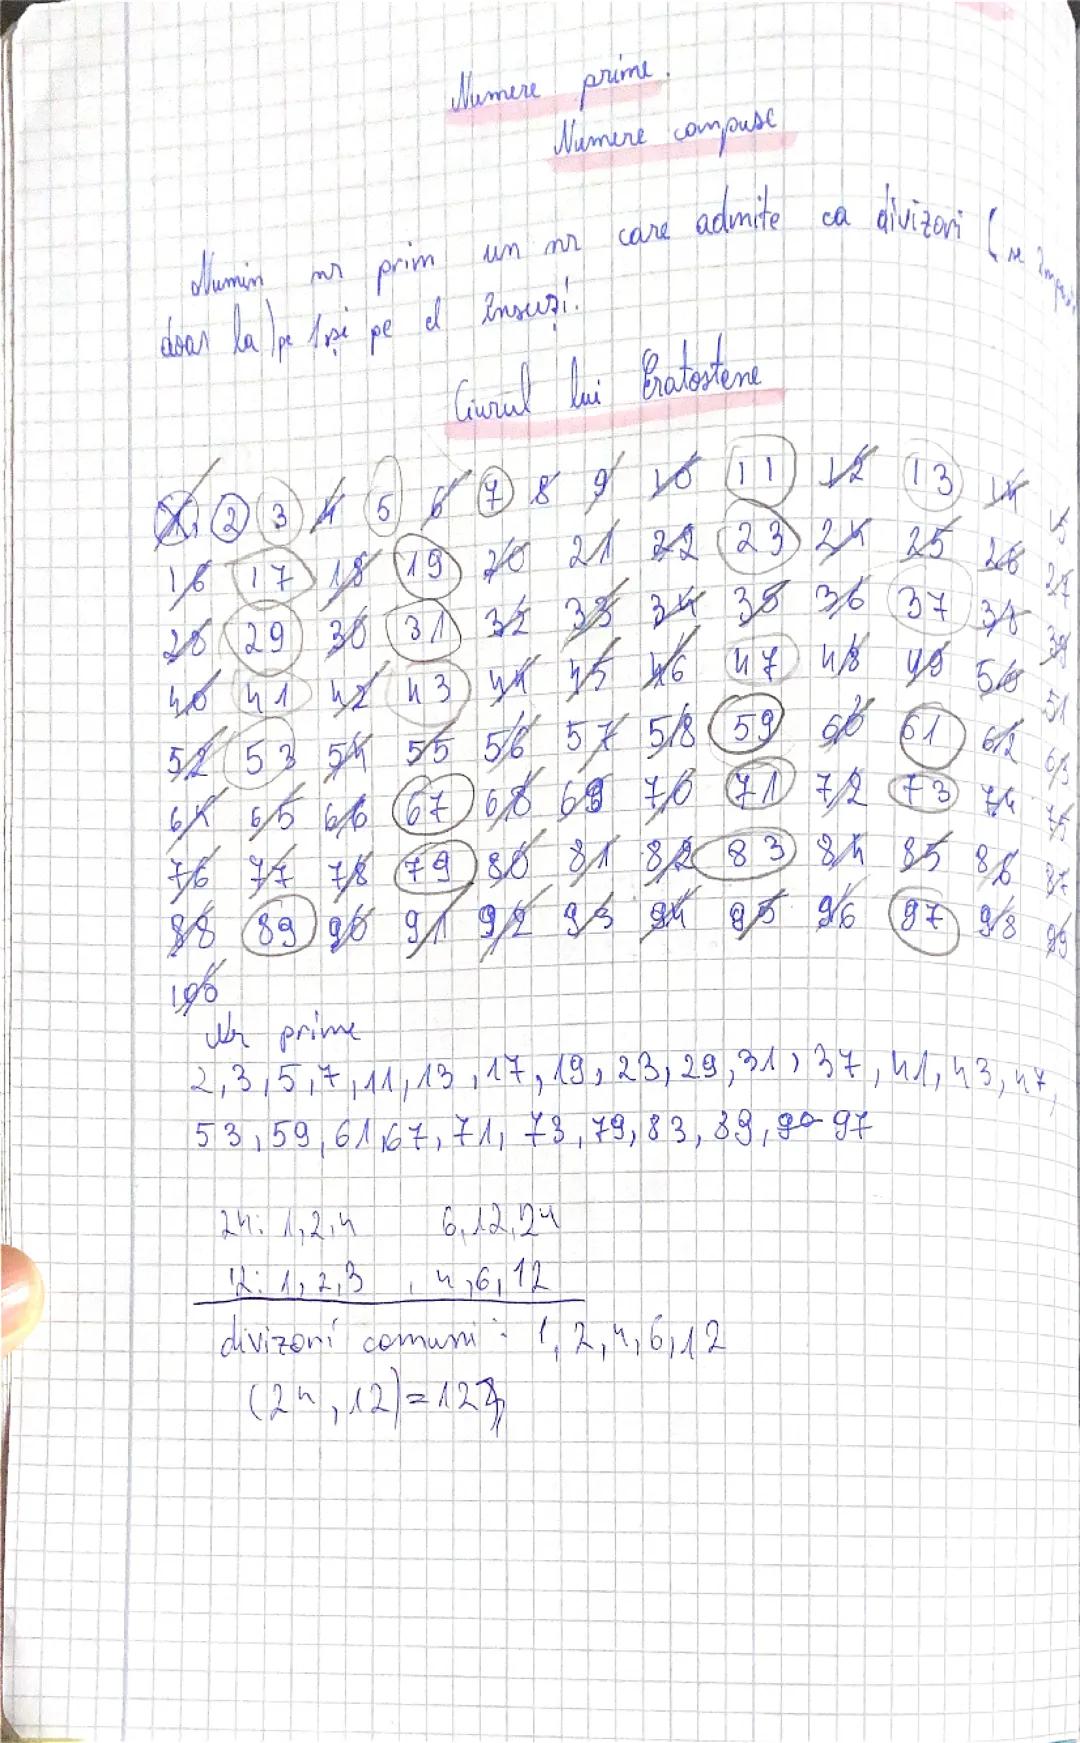 Numere prime.
Numere compuse
Numim nr prim un nr care admite ca divizori (se
doar la) pe 1 și pe el însuși.
Ciurul lui Eratostene
1 2 3 4 5 6 7 8 9 10 11 12 13 14 15
16 17 18 19 20 21 22 23 24 25 26 27
28 29 30 31 32 33 34 35 36 37 38 39
40 41 42 43 44 45 46 47 48 49 50 51
52 53 54 55 56 57 58 59 60 61 62 63
64 65 66 67 68 69 70 71 72 73 74 75
76 77 78 79 80 81 82 83 84 85 86 87
88 89 90 91 92 93 94 95 96 97 98 99
100
Nr prime
2, 3, 5, 7, 11, 13, 17, 19, 23, 29, 31, 37, 41, 43, 47,
53, 59, 61, 67, 71, 73, 79, 83, 89, 97
24: 1, 2, 4 6, 12, 24
12: 1, 2, 3, 4, 6, 12
divizori comuni: 1, 2, 4, 6, 12
(24, 12) = 12